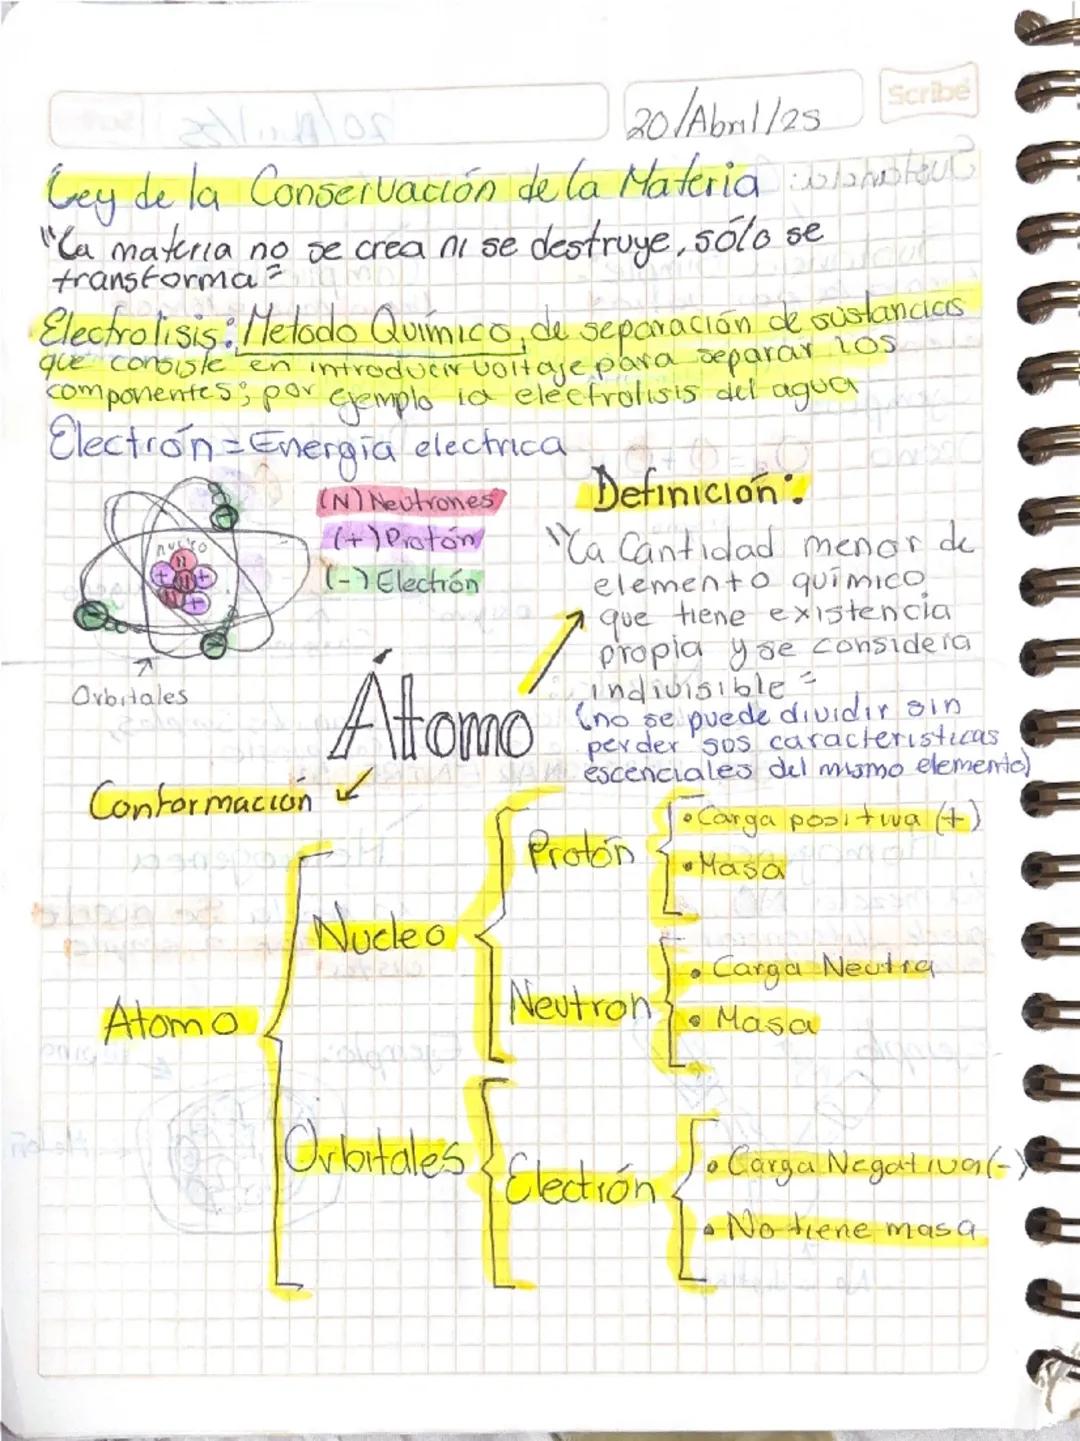 Scribe
20/Abril/25
Ley de la Conservación de la Materia
"La materia no se crea ni se destruye, sólo se
transforma"
Electrolisis: Metodo Químico, de separación de sustancias
que consiste en introducir voltaje para separar los
componentes; por ejemplo la electrolisis del agua
Electrón = Energía electrica
(N) Neutrones
(+) Protón
(-) Electrón
nucleo
n
+
+
n
n
+
-
-
-
Orbitales
Definición:
"La Cantidad menor de
elemento químico
que tiene existencia
propia y se considera
indivisible"
(no se puede dividir sin
perder sus caracteristicas
escenciales del mismo elemento)
Átomo
Conformación
Atomo
Nucleo
Protón
• Carga positiva (+)
• Masa
Neutron
• Carga Neutra
• Masa
Orbitales
Electrón
• Carga Negativa (-)
• No tiene masa